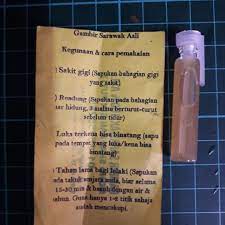 Gambir Sarawak Asli
Kegunaan & cara pemakaian
) Sakit gigi (Sapukan bahagian gigi
yang sakit)
) Resdung (Sapukan pada bahagian
luar hidung, 3 malam berturut-turut
sebelum tidur)
Luka terkena bisa binatang (sapu
pada tempat yang luka/kena bisa
binatang)
) Tahan lama bagi lelaki (Sapukan
pada takuk senjata anda, biar selama
15-30 min & basuh dengan air &
sabun. Guna hanya 1-2 titik sahaja
sudah mencukupi.